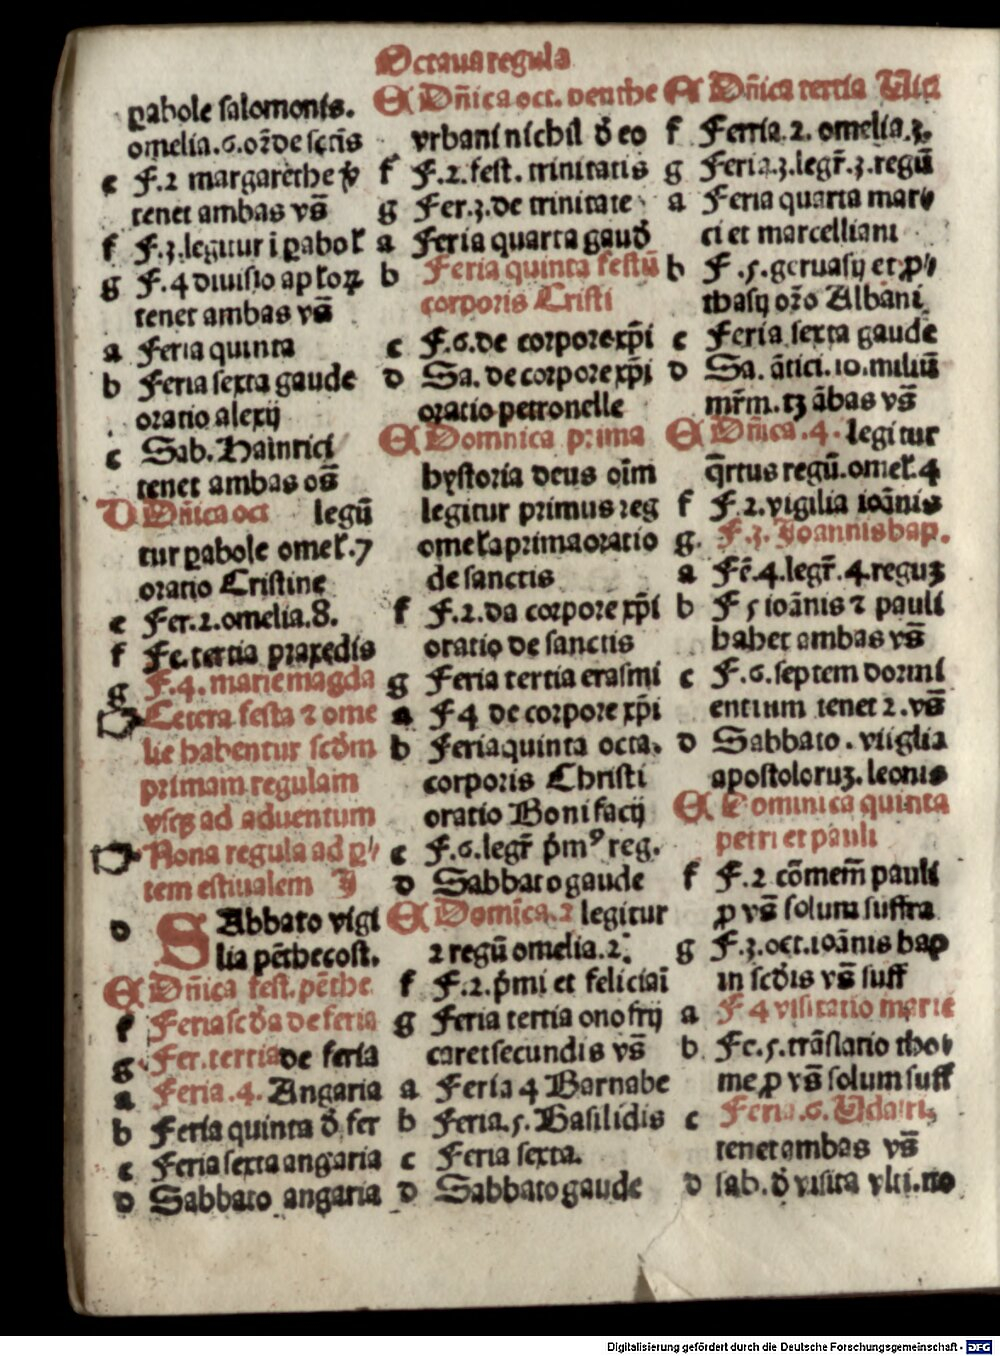 Octaua regula
ꝑabole salomonis.
omelia.6.or̄o de sctīs
e F.2 margarethe ꝟ
tenet ambas vs̄
f F.3.legitur i ꝑabol̄
g F.4 diuisio apl̄oꝝ
tenet ambas vs̄
a Feria quinta
b Feria sexta gaude
oratio alexij
c Sab. Hainrici
tenet ambas os̄
D Dn̄ica oct legū
tur ꝑabole omel̄.7
oratio Cristine
e Fer.2.omelia.8.
f Fe.tertia praxedis
g F.4. marie magda
Cetera festa ⁊ ome
lie habentur scd̄m
primam regulam
vsqꝫ ad aduentum
Nona regula ad ꝑ
tem estiualem
d SAbbato vigi
lia pēthecost.
E Dn̄ica fest.pēthe
f Feria scd̄a de feria
g Fer.tertia de feria
a Feria.4. Angaria
b Feria quinta d̄ fer
c Feria sexta angaria
d Sabbato angaria
E Dn̄ica oct. penthe
vrbani nichil d̄ eo
f F.2.fest. trinitatis
g Fer.3.de trinitate
a Feria quarta gaud̄
b Feria quinta festū
corporis Cristi
c F.6.de corpore xp̄i
d Sa. de corpore xp̄i
oratio petronelle
E Domnica prima
hystoria deus oīm
legitur primus reg
omel̄a prima oratio
de sanctis
f F.2.da corpore xp̄i
oratio de sanctis
g Feria tertia erasmi
a F 4 de corpore xp̄i
b Feria quinta octa.
corporis Christi
oratio Bonifacij
c F.6.legr̄ p̄mꝰ reg.
d Sabbato gaude
E Domīca.2 legitur
2 regū omelia.2.
f F.2.p̄mi et feliciaī
g Feria tertia onofrij
caret secundis vs̄
a Feria 4 Barnabe
b Feria.5. Basilidis
c Feria sexta.
d Sabbato gaude
E Dn̄ica tertia
f Ferria.2. omelia.3.
g Feria.3.legr̄.3.regū
a Feria quarta mar
ci et marcelliani
b F.5.geruasij et ꝓ
thasij or̄o Albani
c Feria sexta gaude
d Sa. ātici.10.miliū
mr̄m.tꝫ ābas vs̄
E Dn̄ica.4. legitur
q̄rtus regū.omel̄.4
f F.2.vigilia ioānis
g. F.3.Joannis bap.
a Fē.4.legr̄.4.reguꝫ
b F 5 ioānis ⁊ pauli
habet ambas vs̄
c F.6.septem dormi
entium tenet 2.vs̄
d Sabbato.viiglia
apostoloruꝫ.leonis
E Dominica quinta
petri et pauli
f F.2 cōmem̄ pauli
ꝓ vs̄ solum suffra
g F.3.oct.ioānis bap
in scd̄is vs̄ suff
a F 4 visitatio marie
b Fe.5.trāslatio tho
me ꝓ vs̄ solum suff
c Feria.6. Udalri.
tenet ambas vs̄
d sab.d̄ visita vlti.no
Digitalisierung gefördert durch die Deutsche Forschungsgemeinschaft - DFG